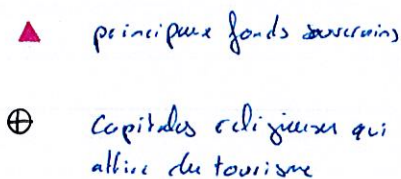 principaux fonds souverains
Capitales religieuses qui
attire du tourisme